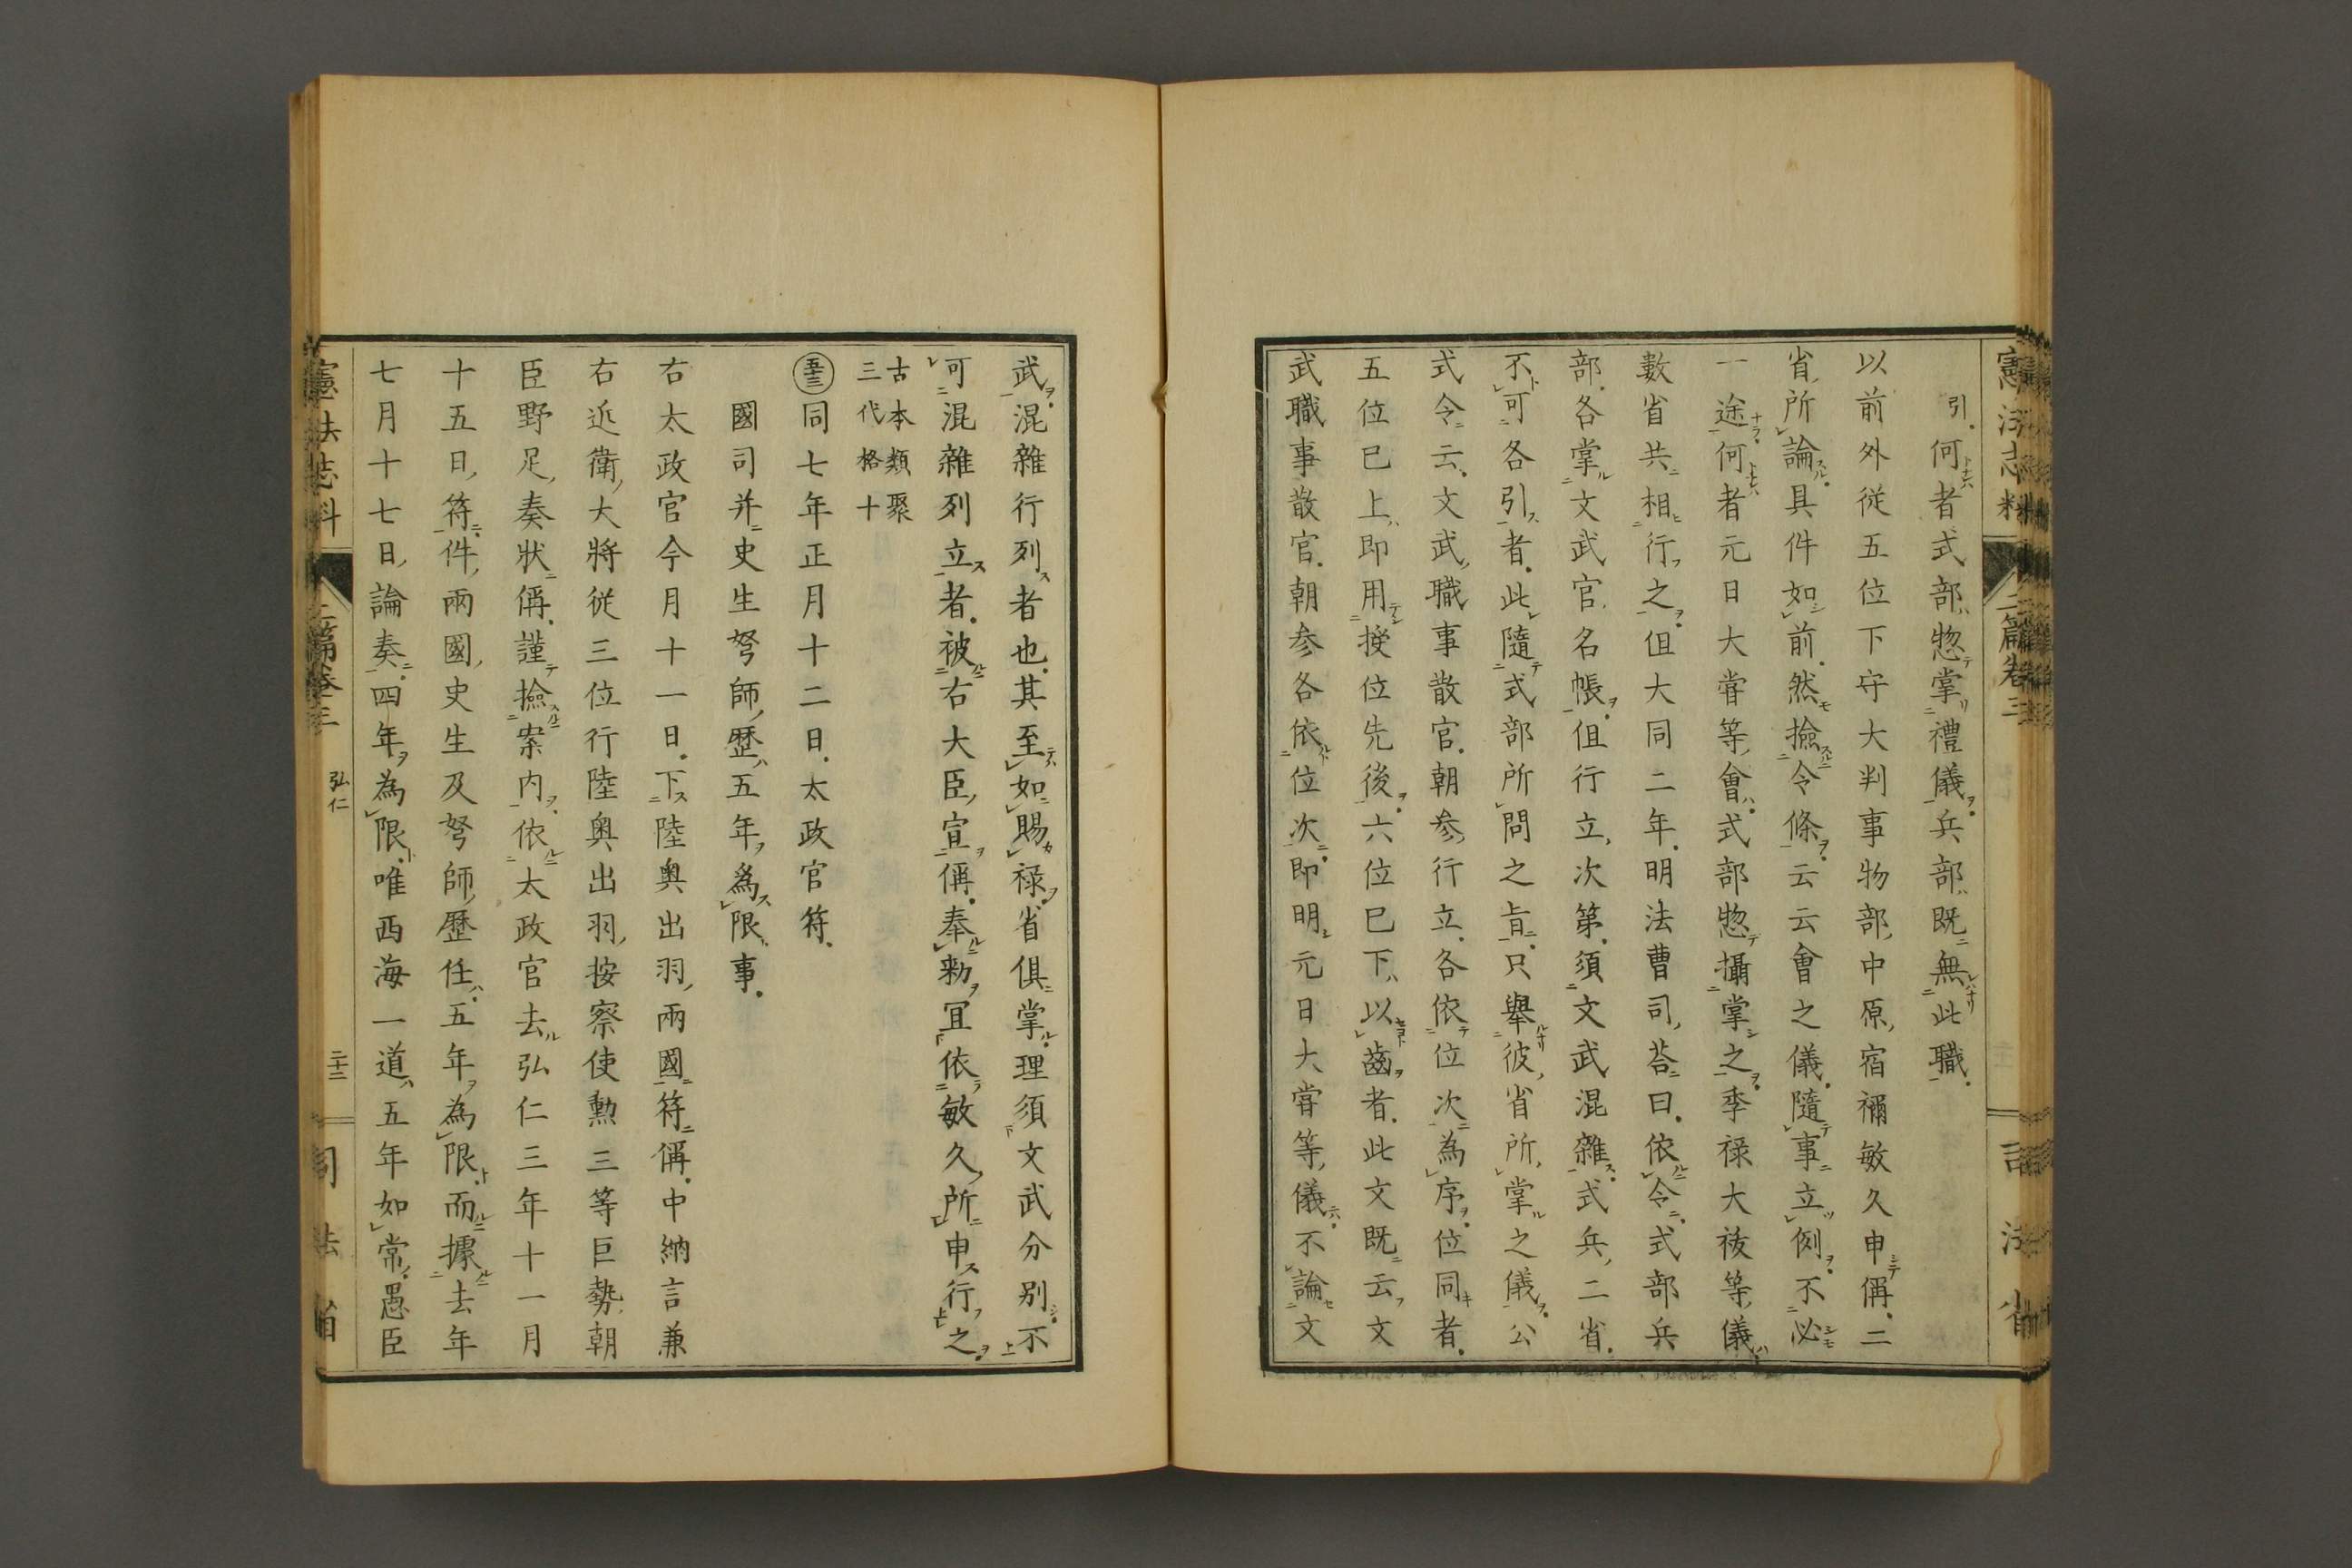 憲法志料
二篇卷三
司法省
引。何者式部惣掌禮儀。兵部既無此職。
以前外從五位下守大判事物部中原宿禰敏久申偁。二
省所論具件如前。然撿令條云云會之儀。隨事立例。不必
一途。何者元日大甞等會。式部惣攝掌之。季祿大祓等儀。
數省共相行之。但大同二年。明法曹司荅曰。依令。式部兵
部。各掌文武官名帳。但行立次第。須文武混雜。式兵二省。
不可各引者。此隨式部所問之旨。只舉彼省所掌之儀。公
式令云。文武職事散官。朝參行立。各依位次為序。位同者。
五位已上即用授位先後。六位已下以齒者。此文既云文
武職事散官。朝參各依位次。即明元日大甞等儀。不論文
武。混雜行列者也。其至如賜祿。省俱掌。理須文武分别。不
可混雜列立者。被右大臣宣偁。奉勅冝依敏久所申行之。
古本類聚
三代格十
五十三 同七年正月十二日。太政官符。
國司并史生弩師歷五年為限事。
右太政官今月十一日。下陸奥出羽兩國符偁。中納言兼
右近衛大將從三位行陸奥出羽按察使勲三等巨勢朝
臣野足奏狀偁。謹撿案内。依太政官去弘仁三年十一月
十五日符。件兩國史生及弩師歷任。五年為限。而據去年
七月十七日論奏。四年為限。唯西海一道。五年如常。愚臣
憲法志料
二篇卷三
弘仁
二十二
司法省